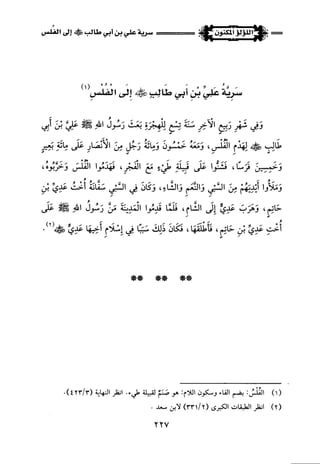 اللؤلؤ المكنون
سرية علي بن أبي طالب ﵁ إلى الفلس
سَرِيَّةُ عَلِيِّ بْنِ أَبِي طَالِبٍ ﵁ إِلَى الفُلْسِ (١)
وَفِي شَهْرِ رَبِيعٍ الآخِرِ سَنَةَ تِسْعٍ لِلْهِجْرَةِ بَعَثَ رَسُولُ اللهِ ﷺ عَلِيَّ بْنَ أَبِي
طَالِبٍ ﵁ لِهَدْمِ الفُلْسِ، وَمَعَهُ خَمْسُونَ وَمِائَةُ رَجُلٍ مِنَ الأَنْصَارِ عَلَى مِائَةِ بَعِيرٍ
وَخَمْسِينَ فَرَسًا، فَشَنُّوا عَلَى قَبِيلَةِ طَيِّءٍ مَعَ الفَجْرِ، فَهَدَمُوا الفُلْسَ وَخَرَّبُوهُ،
وَمَلَأُوا أَيْدِيَهُمْ مِنَ السَّبْيِ وَالنَّعَمِ وَالشَّاءِ، وَكَانَ فِي السَّبْيِ سَفَّانَةُ أُخْتُ عَدِيِّ بْنِ
حَاتِمٍ، وَهَرَبَ عَدِيٌّ إِلَى الشَّامِ، فَلَمَّا قَدِمُوا المَدِينَةَ مَنَّ رَسُولُ اللهِ ﷺ عَلَى
أُخْتِ عَدِيِّ بْنِ حَاتِمٍ، فَأَطْلَقَهَا، فَكَانَ ذَلِكَ سَبَبًا فِي إِسْلَامِ أَخِيهَا عَدِيٍّ ﵁ (٢).
** ** **
(١) الفُلْسُ: بضم الفاء وسكون اللام: هو صَنَمٌ لقبيلة طيء. انظر النهاية (٤٢٣/٣).
(٢) انظر الطبقات الكبرى (٣٣١/٢) لابن سعد.
٢٢٧